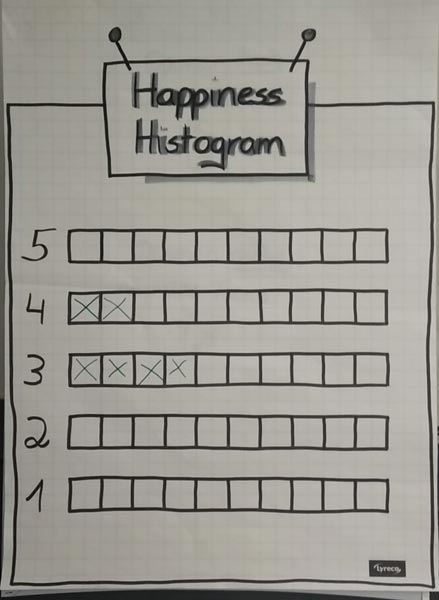 Happiness
Histogram
5
4
3
2
1
Lyreco